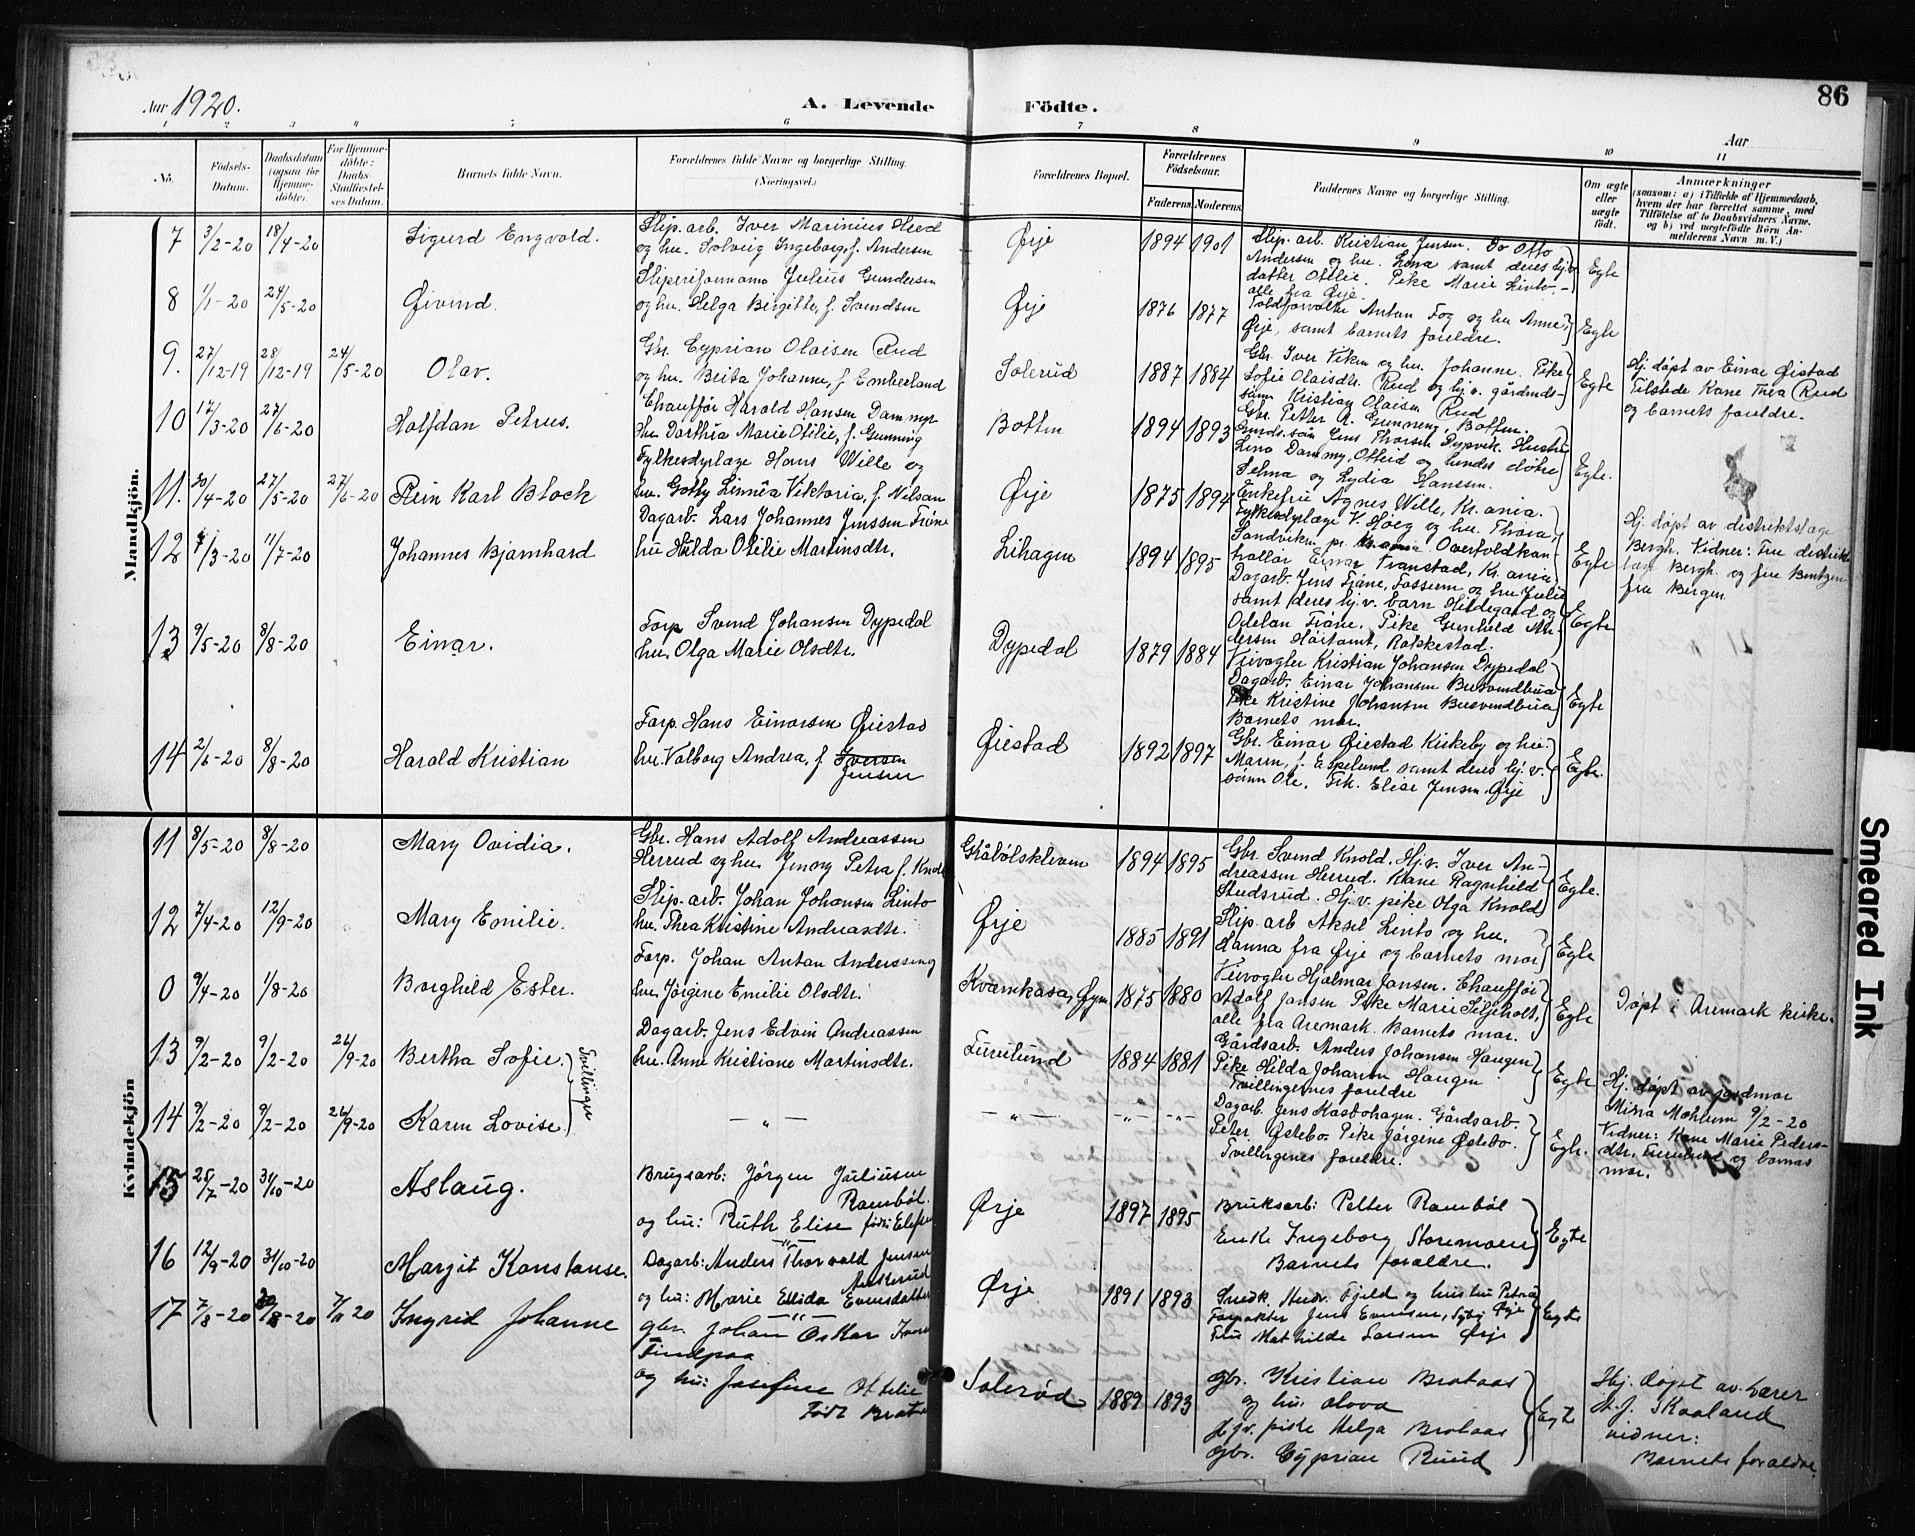 86
Aar 1920.
A. Levende Födte.
Aar
1 2 3 4 5 6 7 8 9 10 11
No.
Födsels-Datum.
Daabsdatum (ogsaa for Hjemme-döbte).
For Hjemme-döbte: Daabs-Stadfæstel-ses Datum.
Barnets fulde Navn.
Forældrenes fulde Navne og borgerlige Stilling. (Næringsvei.)
Forældrenes Bopæl.
Forældrenes Födselsaar.
Faderens. Moderens.
Faddernes Navne og borgerlige Stilling.
Om ægte eller uægte födt.
Anmærkninger
(saasom: a) i Tilfælde af Hjemmedaab, hvem der har forrettet samme, med Tilföielse af to Daabsvidners Navne. og b) ved uægtefödte Börn Anmelderens Navn m. V.)
Mandkjön.
7 3/2-20 18/4-20 Sigurd Engvald.
Slip. arb. Iver Marinius Heed
og hu. Solveig Ingeborg, f. Andersen
Ørje 1894 1901
Slip. arb. Kristian Jensen. Do Otto
Andersen og hu. Lina samt deres hj.v.
datter Ottilie. Pike Marie Linto,
alle fra Ørje.
Egte
8 1/1-20 24/5-20 Øivind.
Sliperiformann Julius Gundersen
og hu. Helga Birgitte, f. Svendsen
Ørje 1876 1877
Toldforvalter Anton Fog og hu Anne,
Ørje, samt barnets foreldre.
Egte
9. 27/12-19 28/12-19 24/5-20 Olav.
Gbr. Cyprian Olaisen Rud
og hu. Brita Johanne, f. Emberland
Solerud 1887 1884
Gbr. Iver Viken og hu. Johanne. Pike
Sofie Olaisdtr. Rud og hj.v. gårdmds-
sønn Kristian Olaisen Rud
Egte
Hj. døpt av Einar Øistad
Tilstede Kone Thea Rud
og barnets foreldre.
10 17/3-20 27/6-20 Halfdan Petrus.
Chauffør Harald Hansen Dammyr
hu. Dorthea Marie Otilie, f. Gunneng
Botten 1894 1893
Gbr. Petter A. Gunneng, Botten.
Gmds. søn Jens Thorsen Dypvik. Hustru
Lina Dammyr, Otteid og hendes døtre
Selma og Lydia Hanssen.
Egte.
11. 30/4-20 27/5-20 27/6-20 Rein Karl Block
Fylkesdyrlæge Hans Wille og
hu. Gotty Linnéa Viktoria, f. Nilsen
Ørje 1875 1894
Enkefru Agnes Wille, Kr.ania.
Fylkesdyrlæge V. Høeg og hu. Thora
Sandviken pr. Kr.ania Overtoldkon-
trollør Einar Transtad, Kr.ania
Egte
Hj. døpt av distriktslæge
Bergh. Vidner: Fru distrikts
læge Bergh. og fru Bentzen
fra Bergen
12 7/3-20 11/7-20 Johannes Bjarnhard
Dagarb. Lars Johannes Jenssen Tiåne
hu Hilda Otilie Martinsdtr.
Lihagen 1894 1895
Dagarb. Jens Tiåne, Fosseim og hu Julie
samt deres hj.v. barn Hildegard og
Odelan Tiåne. Pike Gunhild An-
dersen Høitomt, Rakkestad.
Egte
13 9/5-20 8/8-20 Einar.
Forp. Svend Johansen Dypedal
hu. Olga Marie Olsdtr.
Dypedal 1879 1884
Veivogter Kristian Johansen Dypedal
Dagarb. Einar Johansen Busvendbua
Pike Kristine Johansen Busvendbua
Barnets mor.
Egte
14 2/6-20 8/8-20 Harald Kristian
Forp. Hans Einarsen Øiestad
hu. Valborg Andrea, f. Iversen
Jensen
Øiestad 1892 1897
Gbr. Einar Øiestad Kirkeby og hu.
Maren, f. Espelund samt deres hj.v.
sønn Ole. Frk. Elise Jensen Ørje
Egte.
Kvindekjön
11 8/5-20 8/8-20 Mary Ovidia.
Gbr. Hans Adolf Andreassen
Herrud og hu. Jenny Petra f. Knold
Gråbølskleven 1894 1895
Gbr. Svend Knold. Hj.v. Iver An-
dreassen Herrud. Kone Ragnhild
Studsrud. Hj.v. pike Olga Knold
Egte.
12 7/4-20 12/9-20 Mary Emilie.
Slip. arb. Johan Johansen Linto
hu. Thea Kristine Andreasdtr.
Ørje 1885 1891
Slip. arb Aksel Linto og hu.
Hanna fra Ørje og barnets mor
Egte
0 9/4-20 1/8-20 Borghild Ester.
Forp. Johan Anton Andersen
hu. Jørgine Emilie Olsdtr.
Kvarnkasa, Øym. 1875 1880
Veivogter Hjalmar Jansen. Chauffør
Adolf Jansen Pike Marie Seljeholt,
alle fra Aremark. barnets mor.
Egte
Døpt i Aremark kirke.
13 9/2-20 9/2-20 26/9-20 Bertha Sofie.
Tvillinger
Dagarb. Jens Edvin Andreassen
hu. Anne Kristiane Martinsdtr.
Furulund 1884 1881
Gårdsarb. Anders Johansen Haugen
Pike Hilda Johansen Haugen
Tvillingenes foreldre
Egte
14 9/2-20 9/2-20 26/9-20 Karen Lovise
— „ — — „ — -„- -„-
Dagarb. Jens Kasbohagen. Gårdsarb.
Peter Østebø. Pike Jørgine Østebø.
Tvillingenes foreldre.
Egte.
Hj. døpt av jordmor
Mina Moheim 9/2-20
Vidner: Kone Marie Peders-
dtr. Furulund og barnas
mor.
15 28/7-20 31/10-20 Aslaug.
Brugsarb: Jörgen Juliusen
Rambøl.
og hu: Ruth Elise
Ørje 1897 1895
Bruksarb: Petter Rambøl
Enke Ingeborg Storemoen
Barnets foraldre.
Egte
16 12/9-20 31/10-20 Margit Konstanse.
Dagarb: Anders Thorvald Jensen
og hu: Marie Elida Evensdatter
Ørje 1891 1893
Snedk. Fjeld og hustru Petra
Forpakter Jens Evensen, Ørje
Fru Mathilde Larsen Ørje
Egte
17 7/8-20 7/11 20 Ingrid Johanne
gbr. Johan Oskar
Tindpaa
og hu: Josefine Otelie
Födt Brot
Solerød 1889 1893
gbr. Kristian Brotaas
og hu: Olova
hjv. pike Helga Brotaas
gbr. Cyprian Ruud
Egte
Hj. døpt av Lærer
Skaaland
vidner:
Barnets foraldre.
Smeared Ink